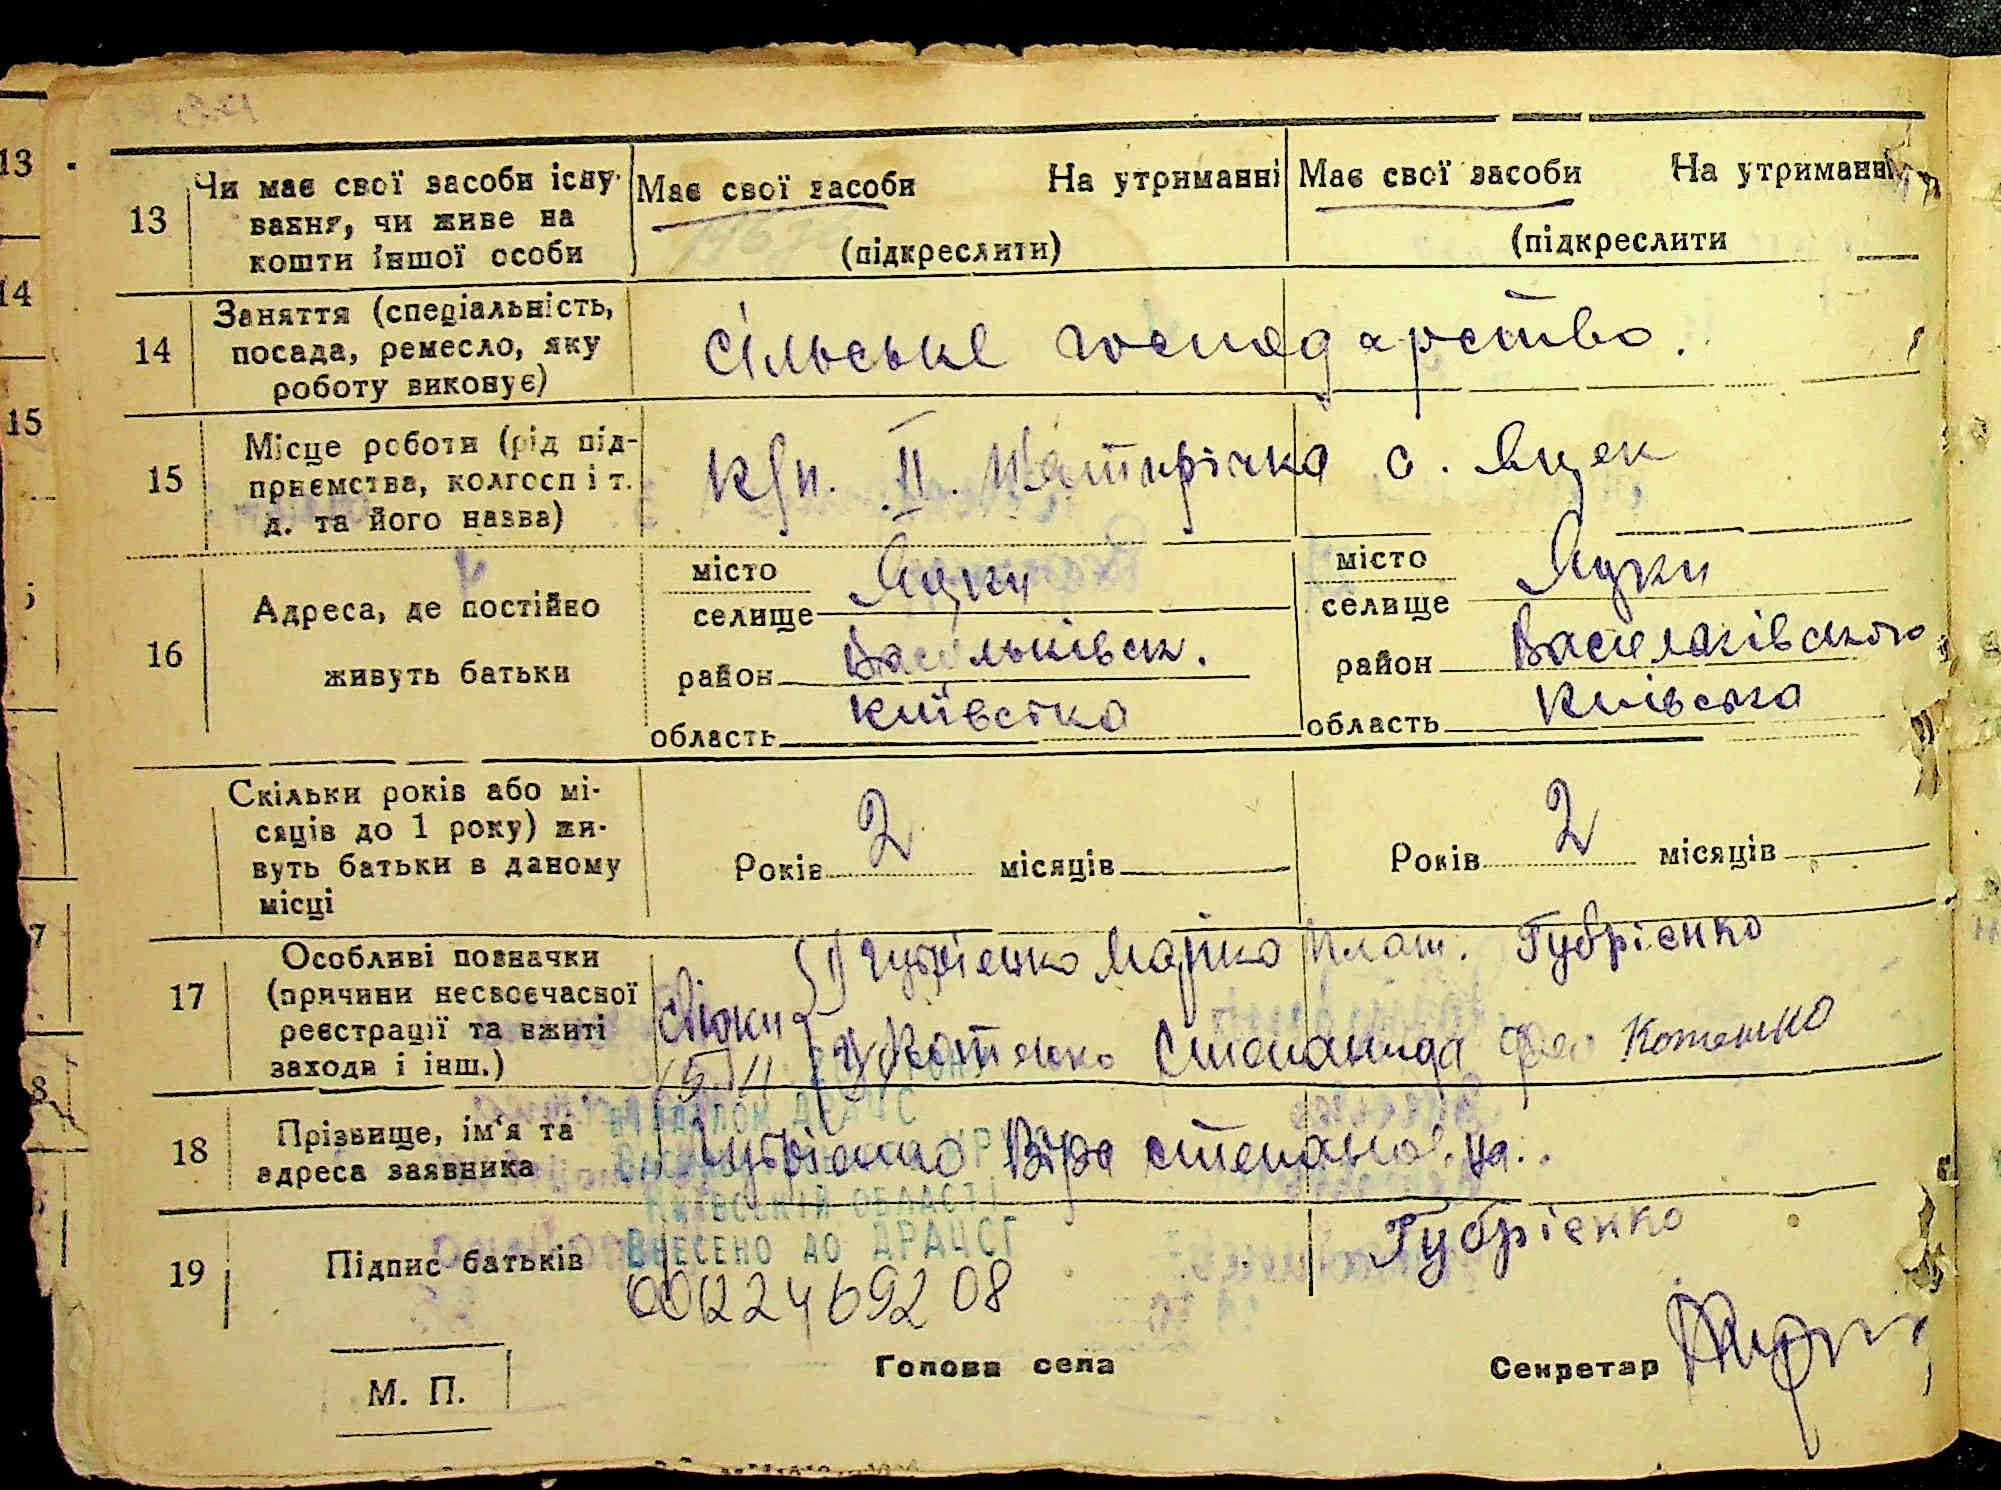 13
14
15
13 Чи має свої засоби існу-
вання, чи живе на
кошти іншої особи
Має свої засоби На утриманні
(підкреслити)
Має свої засоби На утриманні
(підкреслити
14 Заняття (спеціальність,
посада, ремесло, яку
роботу виконує)
сільське господарство.
15 Місце роботи (рід під-
приємства, колгосп і т.
д. та його назва)
II. П'ятирічка с. Яцек
16 Адреса, де постійно
живуть батьки
місто
селище Яцки
район Васильківск.
область Київська
місто
селище Яцки
район Васильківского
область Київська
Скільки років або мі-
сяців до 1 року) жи-
вуть батьки в даному
місці
Років 2 місяців
Років 2 місяців
17 Особливі позначки
(причини несвоєчасної
реєстрації та вжиті
заходи і інш.)
свідки 1) Губрієнко Марко Плат. Губрієнко
2) Котенко Степанида Котенко
18 Прізвище, ім'я та
адреса заявника
Губрієнко Віра
ВІДДІЛОМ ДРАЦС
КИЇВСЬКІЙ ОБЛАСТІ
ВНЕСЕНО ДО ДРАЦСГ
00122469208
19 Підпис батьків
Губрієнко
М. П.
Голова села
Секретар